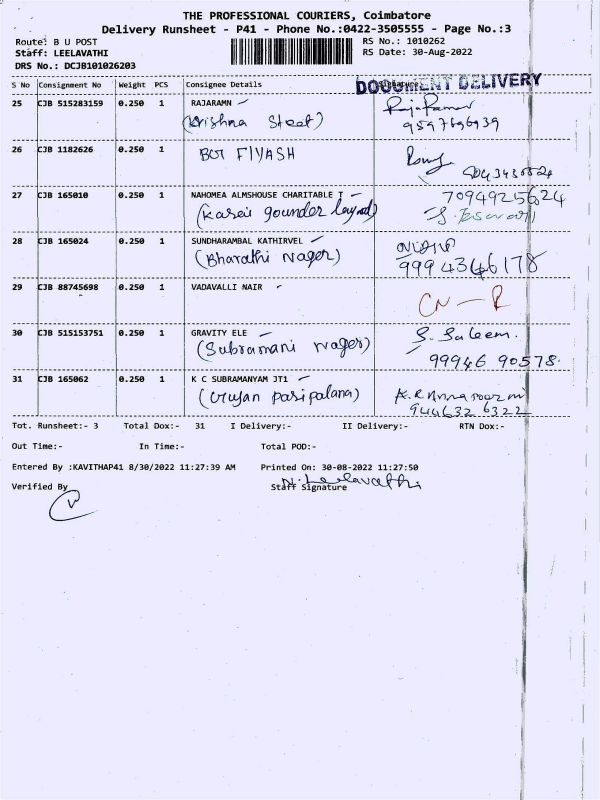 THE PROFESSIONAL COURIERS, Coimbatore
Delivery Runsheet - P41 - Phone No.:0422-3505555 - Page No.:3
Route: B U POST RS No.: 1010262
Staff: LEELAVATHI RS Date: 30-Aug-2022
DRS No.: DCJB101026203
S No Consignment No Weight PCS Consignee Details
DOCUMENT DELIVERY
25 CJB 515283159 0.250 1 RAJARAMN
(Krishna Steet)
26 CJB 1182626 0.250 1 BOT FIYASH
27 CJB 165010 0.250 1 NAHOMEA ALMSHOUSE CHARITABLE T 7094925624
gounder
28 CJB 165024 0.250 1 SUNDHARAMBAL KATHIRVEL
(Bharathi Nager) 9994346178
29 CJB 88745698 0.250 1 VADAVALLI NAIR
CN - R
30 CJB 515153751 0.250 1 GRAVITY ELE S. Saleem.
(Subramani Nager) 99946 90578.
31 CJB 165062 0.250 1 K C SUBRAMANYAM JT1
944632 6322
Tot. Runsheet:- 3 Total Dox:- 31 I Delivery:- II Delivery:- RTN Dox:-
Out Time:- In Time:- Total POD:-
Entered By :KAVITHAP41 8/30/2022 11:27:39 AM Printed On: 30-08-2022 11:27:50
N. Leelavathi
Verified By Staff Signature